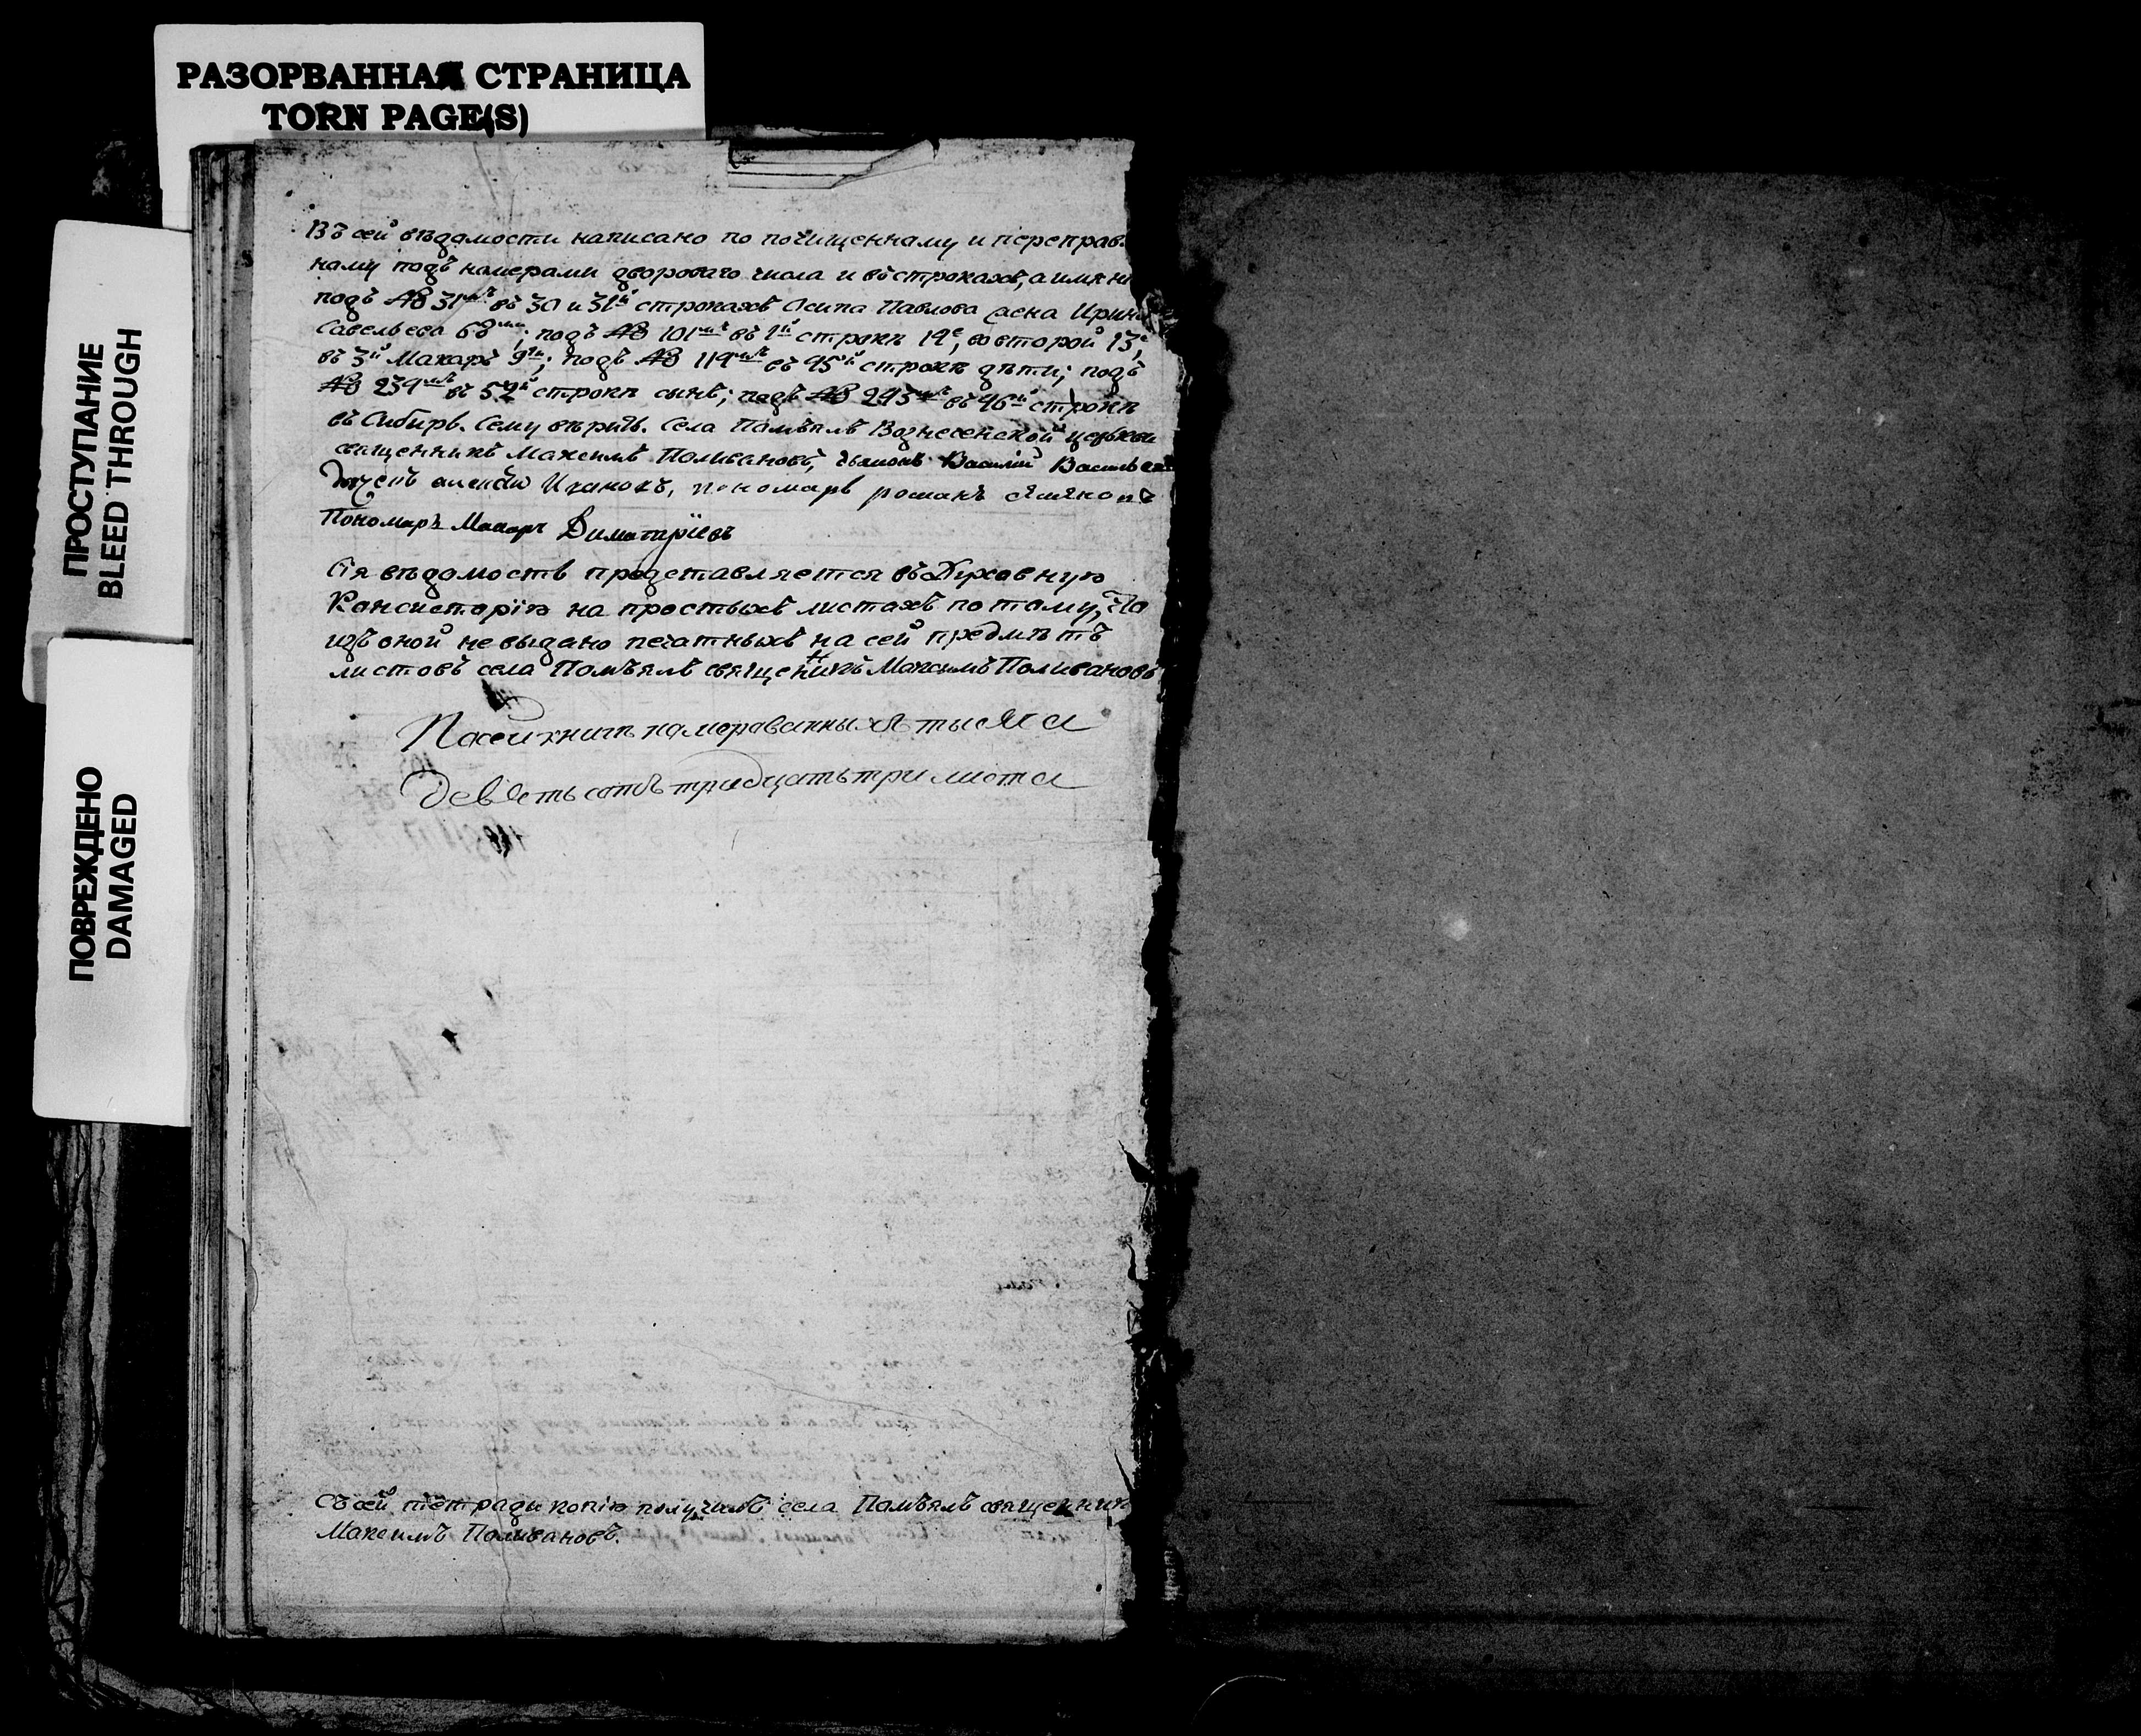 РАЗОРВАННАЯ СТРАНИЦА
TORN PAGE(S)
ПРОСТУПАНИЕ
BLEED THROUGH
ПОВРЕЖДЕНО
DAMAGED
Въ сей вѣдомости написано по почищенному и переправ
ному подъ номерами двороваго числа и въ строкахъ, а имянно
подъ № 31мъ въ 30 и 31й строкахъ Осипа Павлова жена Ирина
Савельева 68; подъ № 101мъ въ 1й строкѣ 19е, во второй 13е,
въ 3й Макаръ 9ть; подъ № 119мъ въ 45й строкѣ дѣти; подъ
№ 239мъ въ 52й строкѣ сынъ; подъ № 243мъ въ 46й строкѣ
въ Сибирь. Сему вѣрить. Села Помъялъ Вознесенской церкви
священникъ Максимъ Поливановъ, дьяконъ Василій Васильевъ
Иванов, пономарь романъ
Пономарь Макаръ Димитріевъ
Сія вѣдомость представляется въ Духовную
Консисторію на простыхъ листахъ потому, что
изъ оной не выдано печатныхъ на сей предмѣтъ
листовъ села Помъялъ священникъ Максимъ Поливановъ
Посей книги номерованныхъ тысяча
девятьсотъ тридцать три листа
Съ сей тетради копію получилъ села Помъялъ священник
Максимъ Поливановъ.